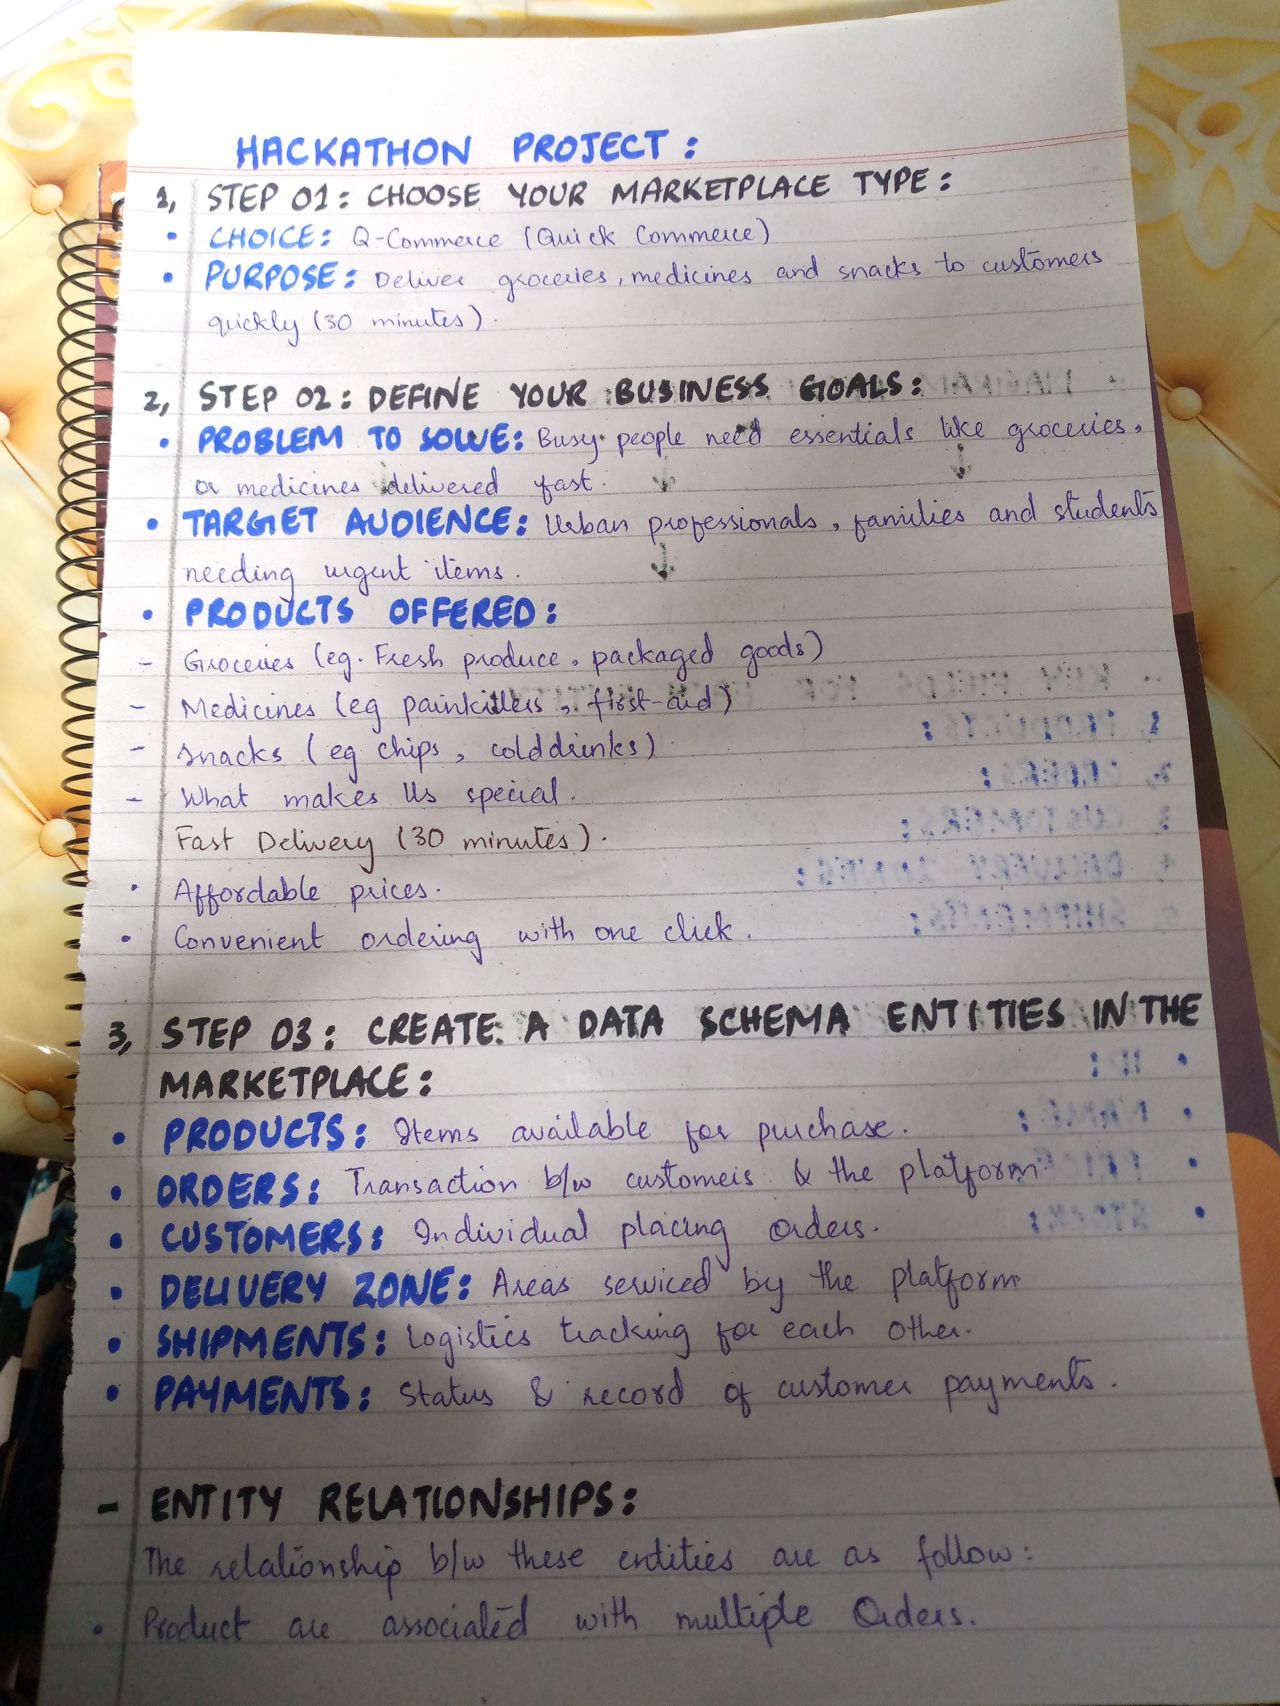 HACKATHON PROJECT:
1, STEP 01: CHOOSE YOUR MARKETPLACE TYPE:
• CHOICE: Q-Commerce (Quick Commerce)
• PURPOSE: Deliver groceries, medicines and snacks to customers
quickly (30 minutes).
2, STEP 02: DEFINE YOUR BUSINESS GOALS:
• PROBLEM TO SOLVE: Busy people need essentials like groceries,
or medicines delivered fast.
• TARGET AUDIENCE: Urban professionals, families and students
needing urgent items.
• PRODUCTS OFFERED:
- Groceries (eg. Fresh produce, packaged goods)
- Medicines (eg painkillers, first-aid)
- Snacks (eg chips, colddrinks)
- What makes Us special.
Fast Delivery (30 minutes).
• Affordable prices.
• Convenient ordering with one click.
3, STEP 03: CREATE A DATA SCHEMA ENTITIES IN THE
MARKETPLACE:
• PRODUCTS: Items available for purchase.
• ORDERS: Transaction b/w customers & the platform
• CUSTOMERS: Individual placing orders.
• DELIVERY ZONE: Areas serviced by the platform
• SHIPMENTS: Logistics tracking for each other.
• PAYMENTS: Status & record of customer payments.
- ENTITY RELATIONSHIPS:
The relationship b/w these entities are as follow:
• Product are associated with multiple Orders.